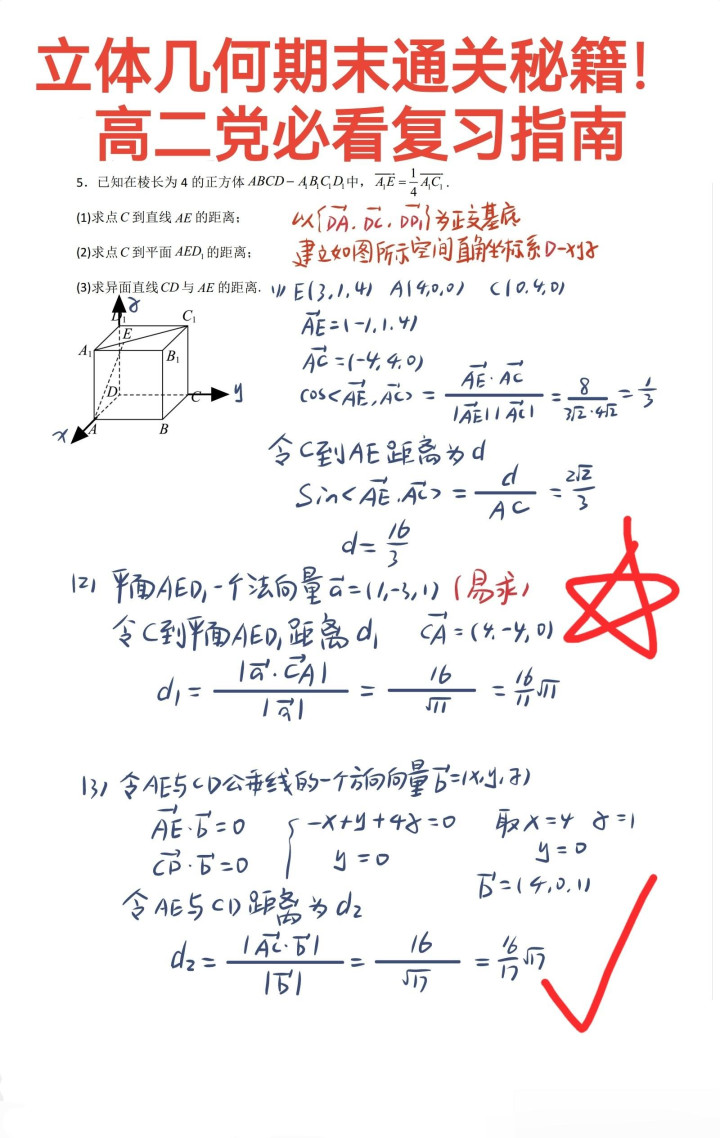 立体几何期末通关秘籍!
高二党必看复习指南
5. 已知在棱长为 4 的正方体 ABCD-A₁B₁C₁D₁中, A₁E=1/4 A₁C₁.
(1)求点 C 到直线 AE 的距离;
以{DA, DC, DD₁}为正交基底
(2)求点 C 到平面 AED₁ 的距离;
建立如图所示空间直角坐标系D-xyz
(3)求异面直线 CD 与 AE 的距离.
z
D₁
C₁
E
A₁
B₁
D
C
y
x
A
B
(1) E(3,1,4) A(4,0,0) C(0,4,0)
AE=(-1,1,4)
AC=(-4,4,0)
cos<AE,AC> = AE·AC/|AE||AC| = 8/3√2·4√2 = 1/3
令C到AE距离为d
Sin<AE,AC> = d/AC = 2√2/3
d=16/3
(2) 平面AED₁一个法向量a=(1,-3,1) (易求)
令C到平面AED₁距离d₁ CA=(4,-4,0)
d₁ = |a·CA|/|a| = 16/√11 = 16/11√11
(3) 令AE与CD公垂线的一个方向向量b=(x,y,z)
AE·b=0 { -x+y+4z=0 取x=4 z=1
CD·b=0 y=0 y=0
b=(4,0,1)
令AE与CD距离为d₂
d₂ = |AC·b|/|b| = 16/√17 = 16/17√17